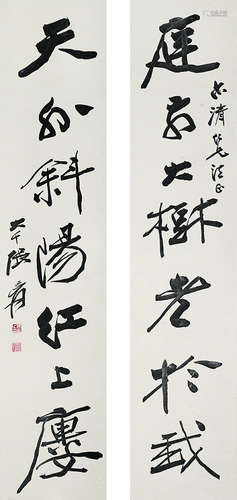 清兄法正
庭前大樹老於我
天外斜陽紅上廔
大千張爰